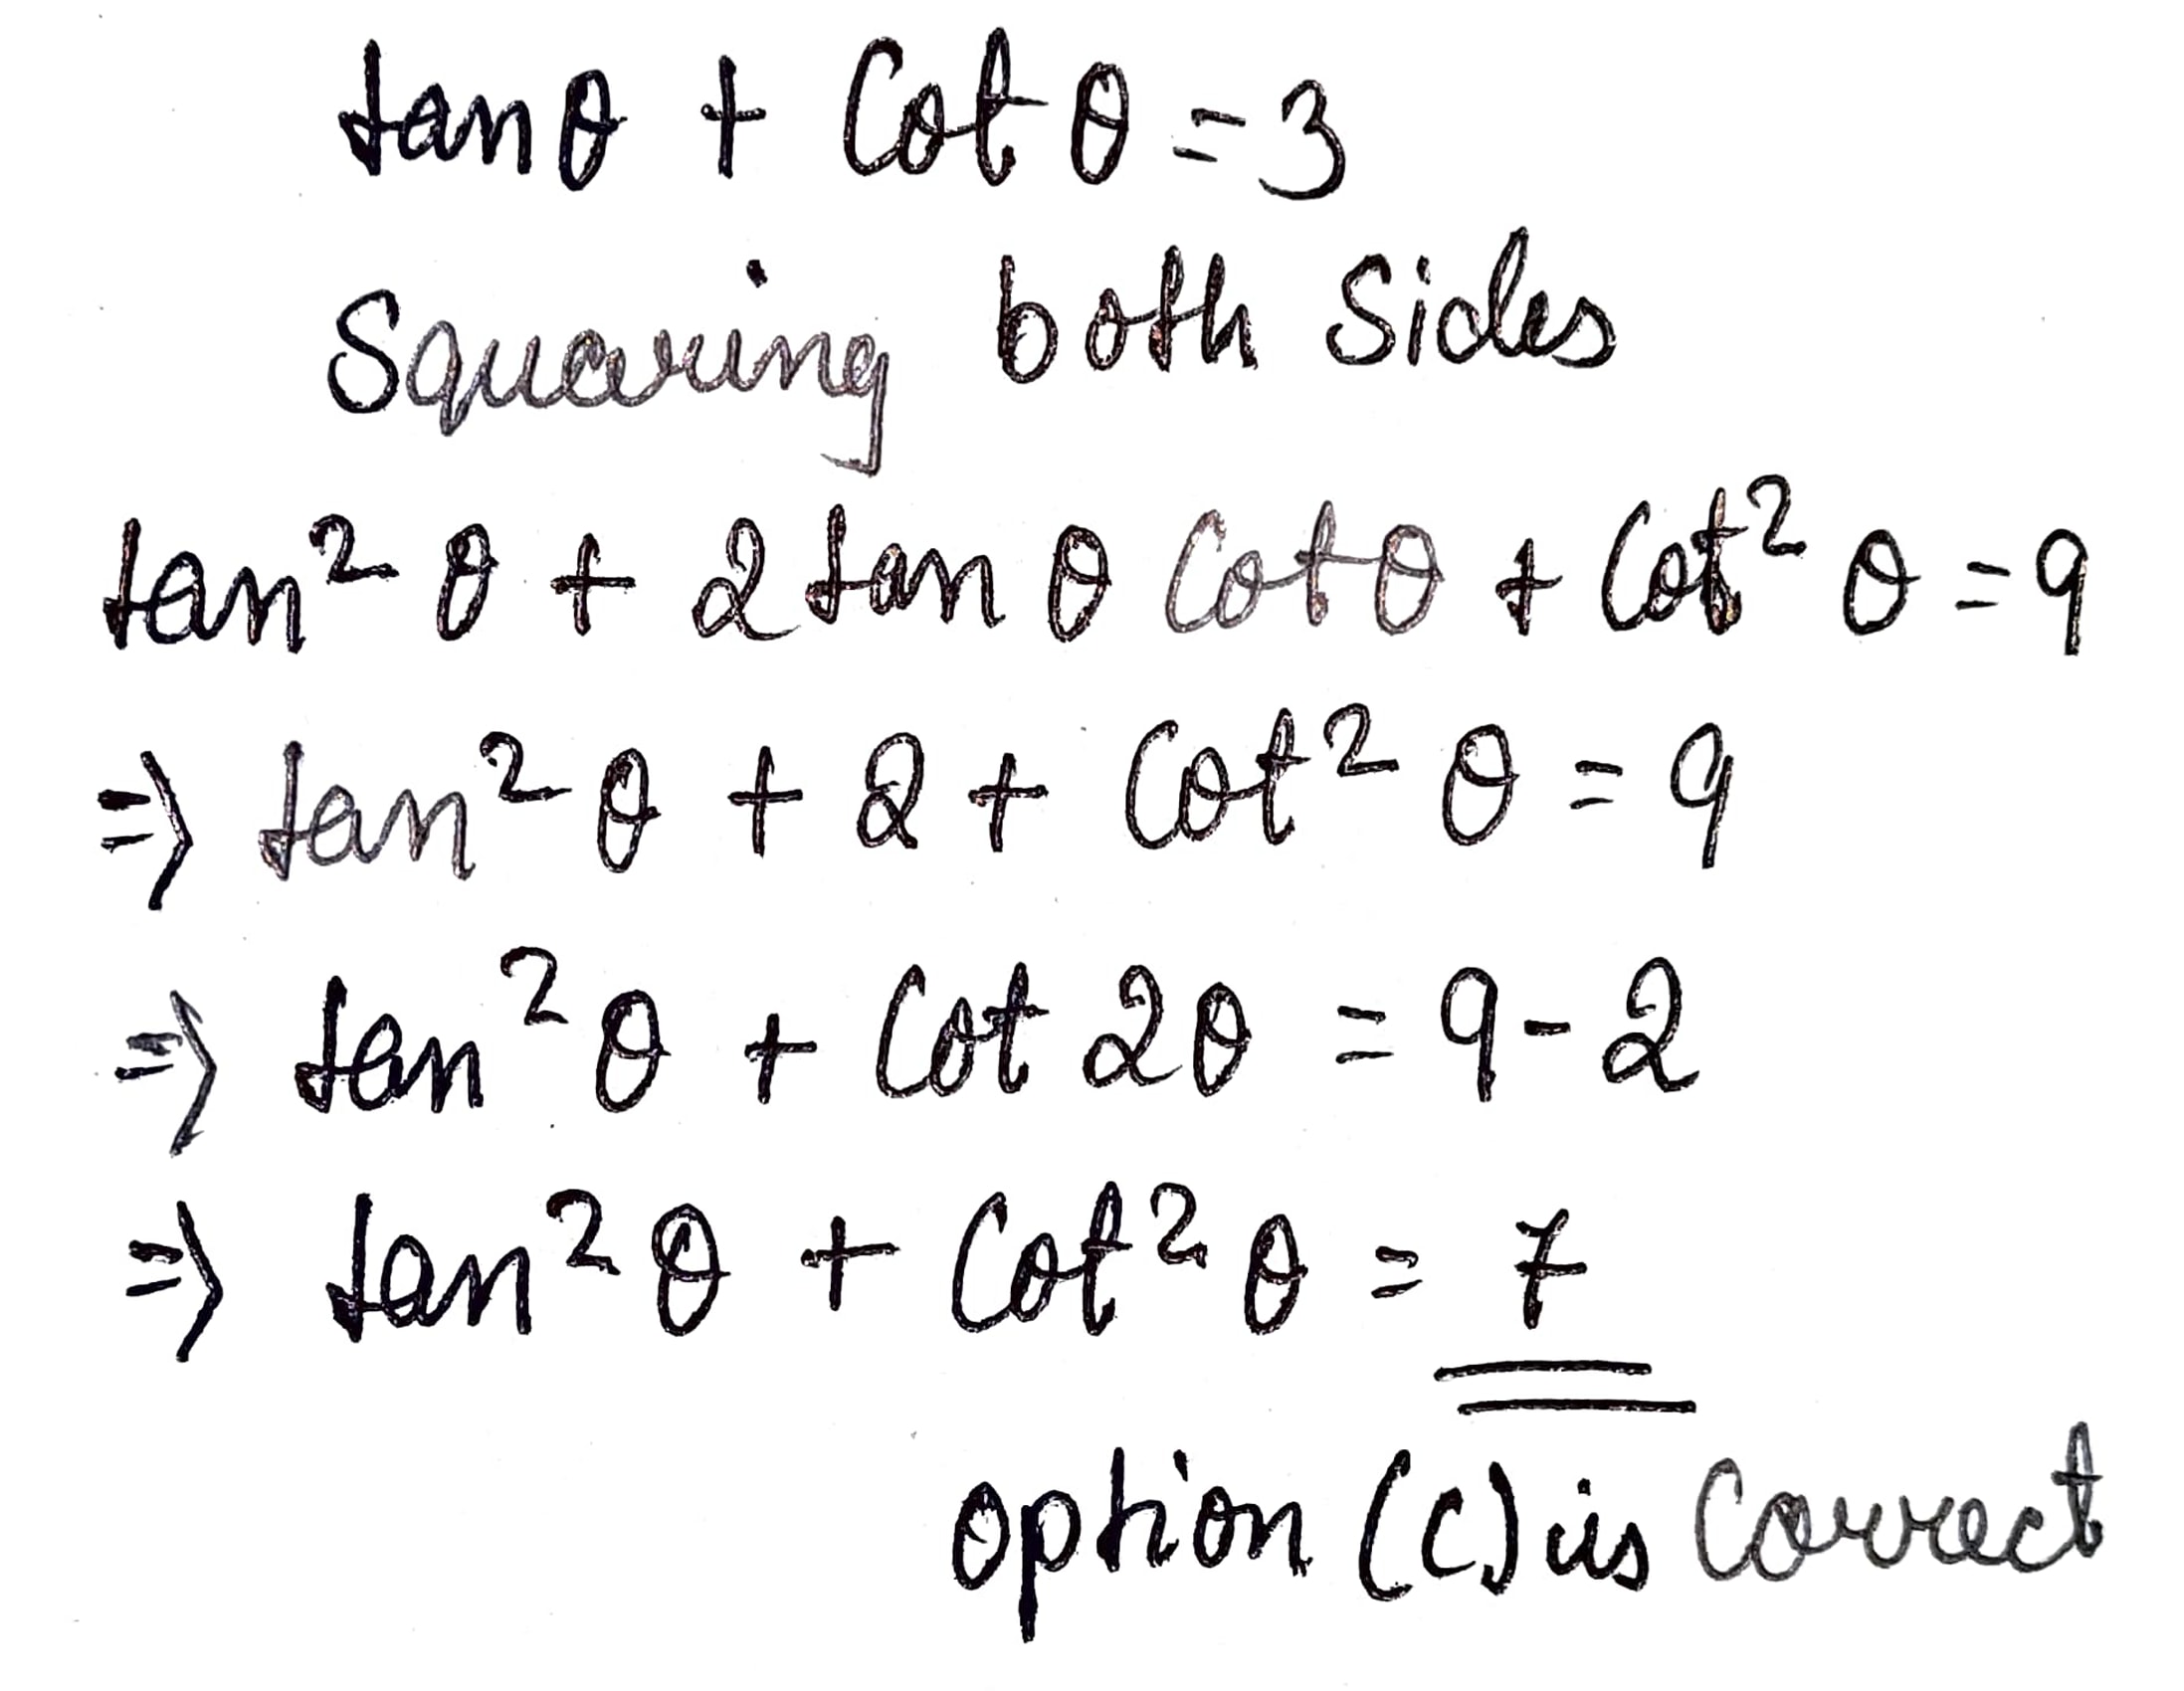 tanθ + Cotθ = 3
Squaring both Sides
tan² θ + 2 tan θ Cotθ + Cot² θ = 9
⇒ tan² θ + 2 + Cot² θ = 9
⇒ tan² θ + Cot 2θ = 9 - 2
⇒ tan² θ + Cot² θ = 7
option (C) is Correct